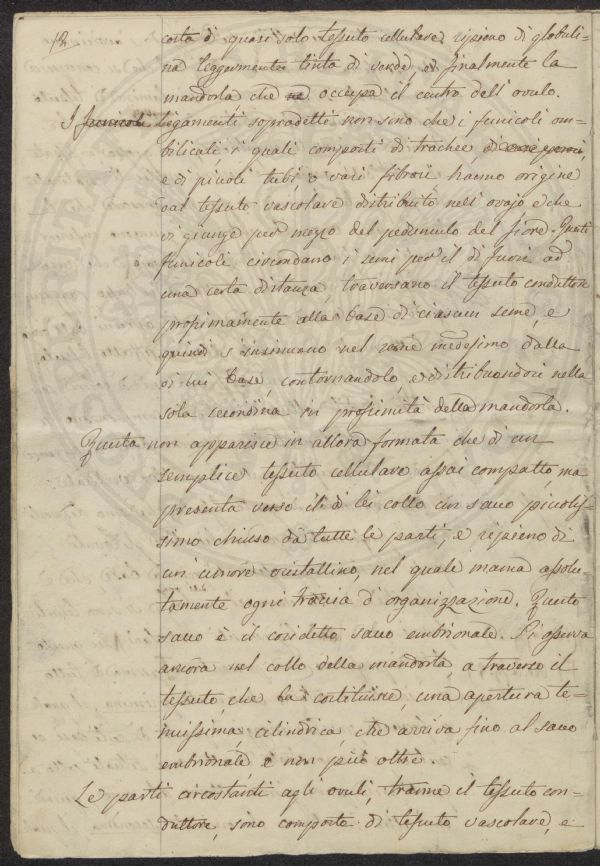 12
costa di quasi solo tessuto cellulare ripieno di globuli=
na leggermente tinta di verde, e finalmente la
mandorla che ne occupa il centro dell'ovulo.
I funicoli ligamenti sopradetti non sono che i funicoli om=
bilicali i quali composti di trachee, di
e di piccoli tubi, o vasi fibrosi, hanno origine
dal tessuto vascolare distribuito nell'ovajo e che
vi giunge per mezzo del peduncolo del fiore. Questi
funicoli circondano i semi per il di fuori ad
una certa distanza, traversano il tessuto conduttore
prossimamente alla base di ciascun seme, e
quindi s'insinuano nel seme medesimo dalla
di lui base, contornandolo, e distribuendosi nella
sola secondina in prossimità della mandorla.
Questa non apparisce in allora formata che di un
semplice tessuto cellulare assai compatto, ma
presenta verso il di lei collo un sacco piccolis=
simo chiuso da tutte le parti, e ripieno di
un umore cristallino, nel quale manca assolu=
tamente ogni traccia d'organizzazione. Questo
sacco è il cosidetto sacco embrionale. Si osserva
ancora nel collo della mandorla, a traverso il
tessuto che la costituisce, una apertura te=
nuissima, cilindrica, che arriva fino al sacco
embrionale e non più oltre.
Le parti circostanti agli ovuli, tranne il tessuto con=
duttore, sono composte di tessuto vascolare, e